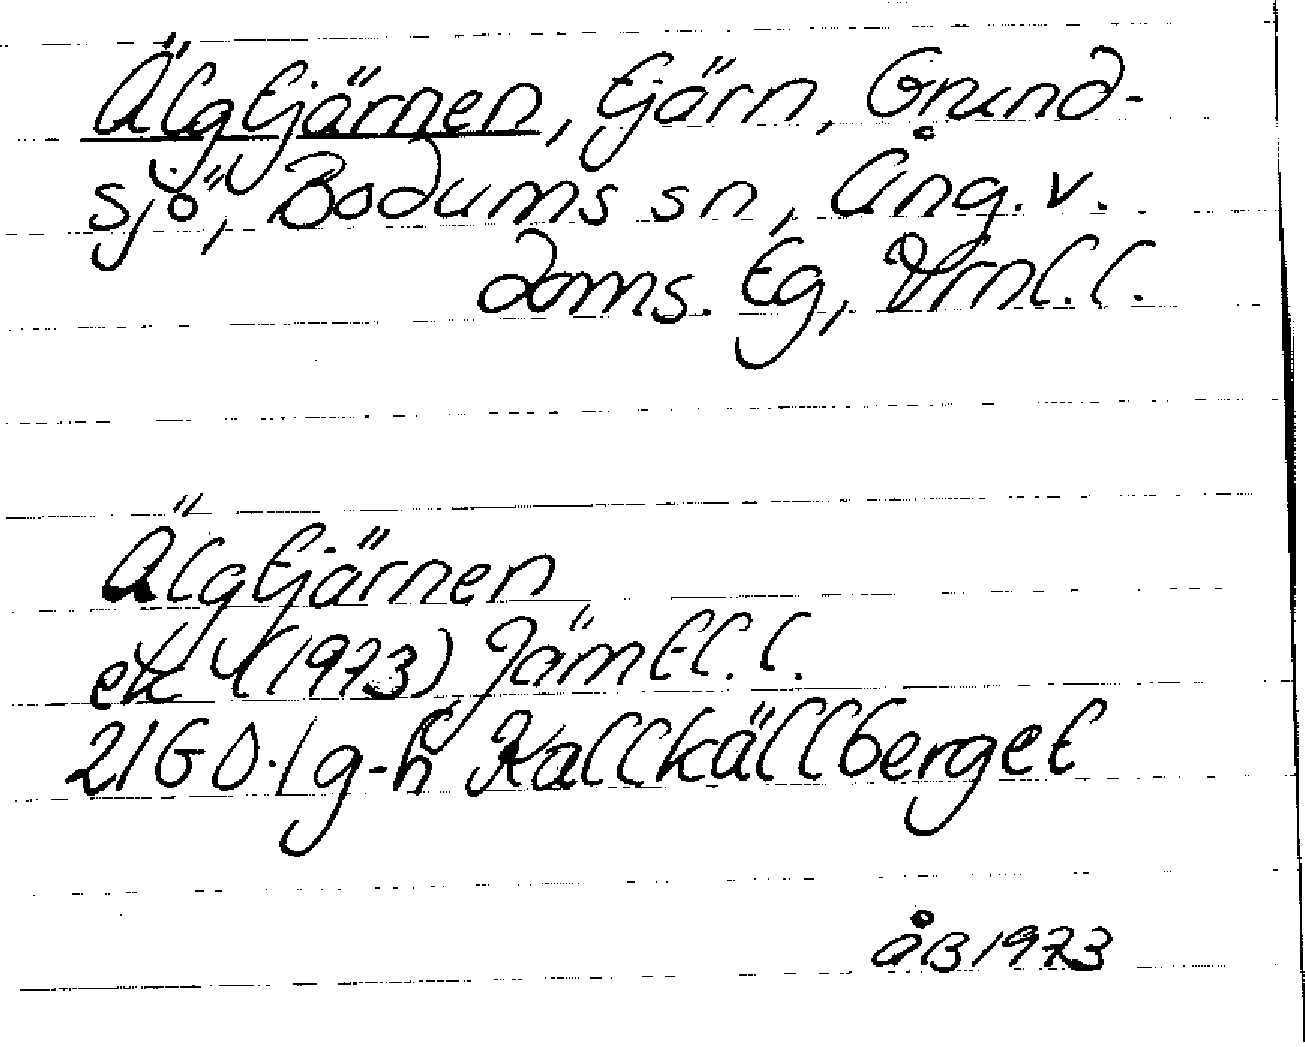 Älgtjärnen, tjärn, Grund-
sjö, Bodums sn, Ång. v.
doms. tg, Vrnl. l.
Älgtjärnen
ek (1973) Jämtl. l.
21G 0.1 g-h Kallkällberget
åB 1973